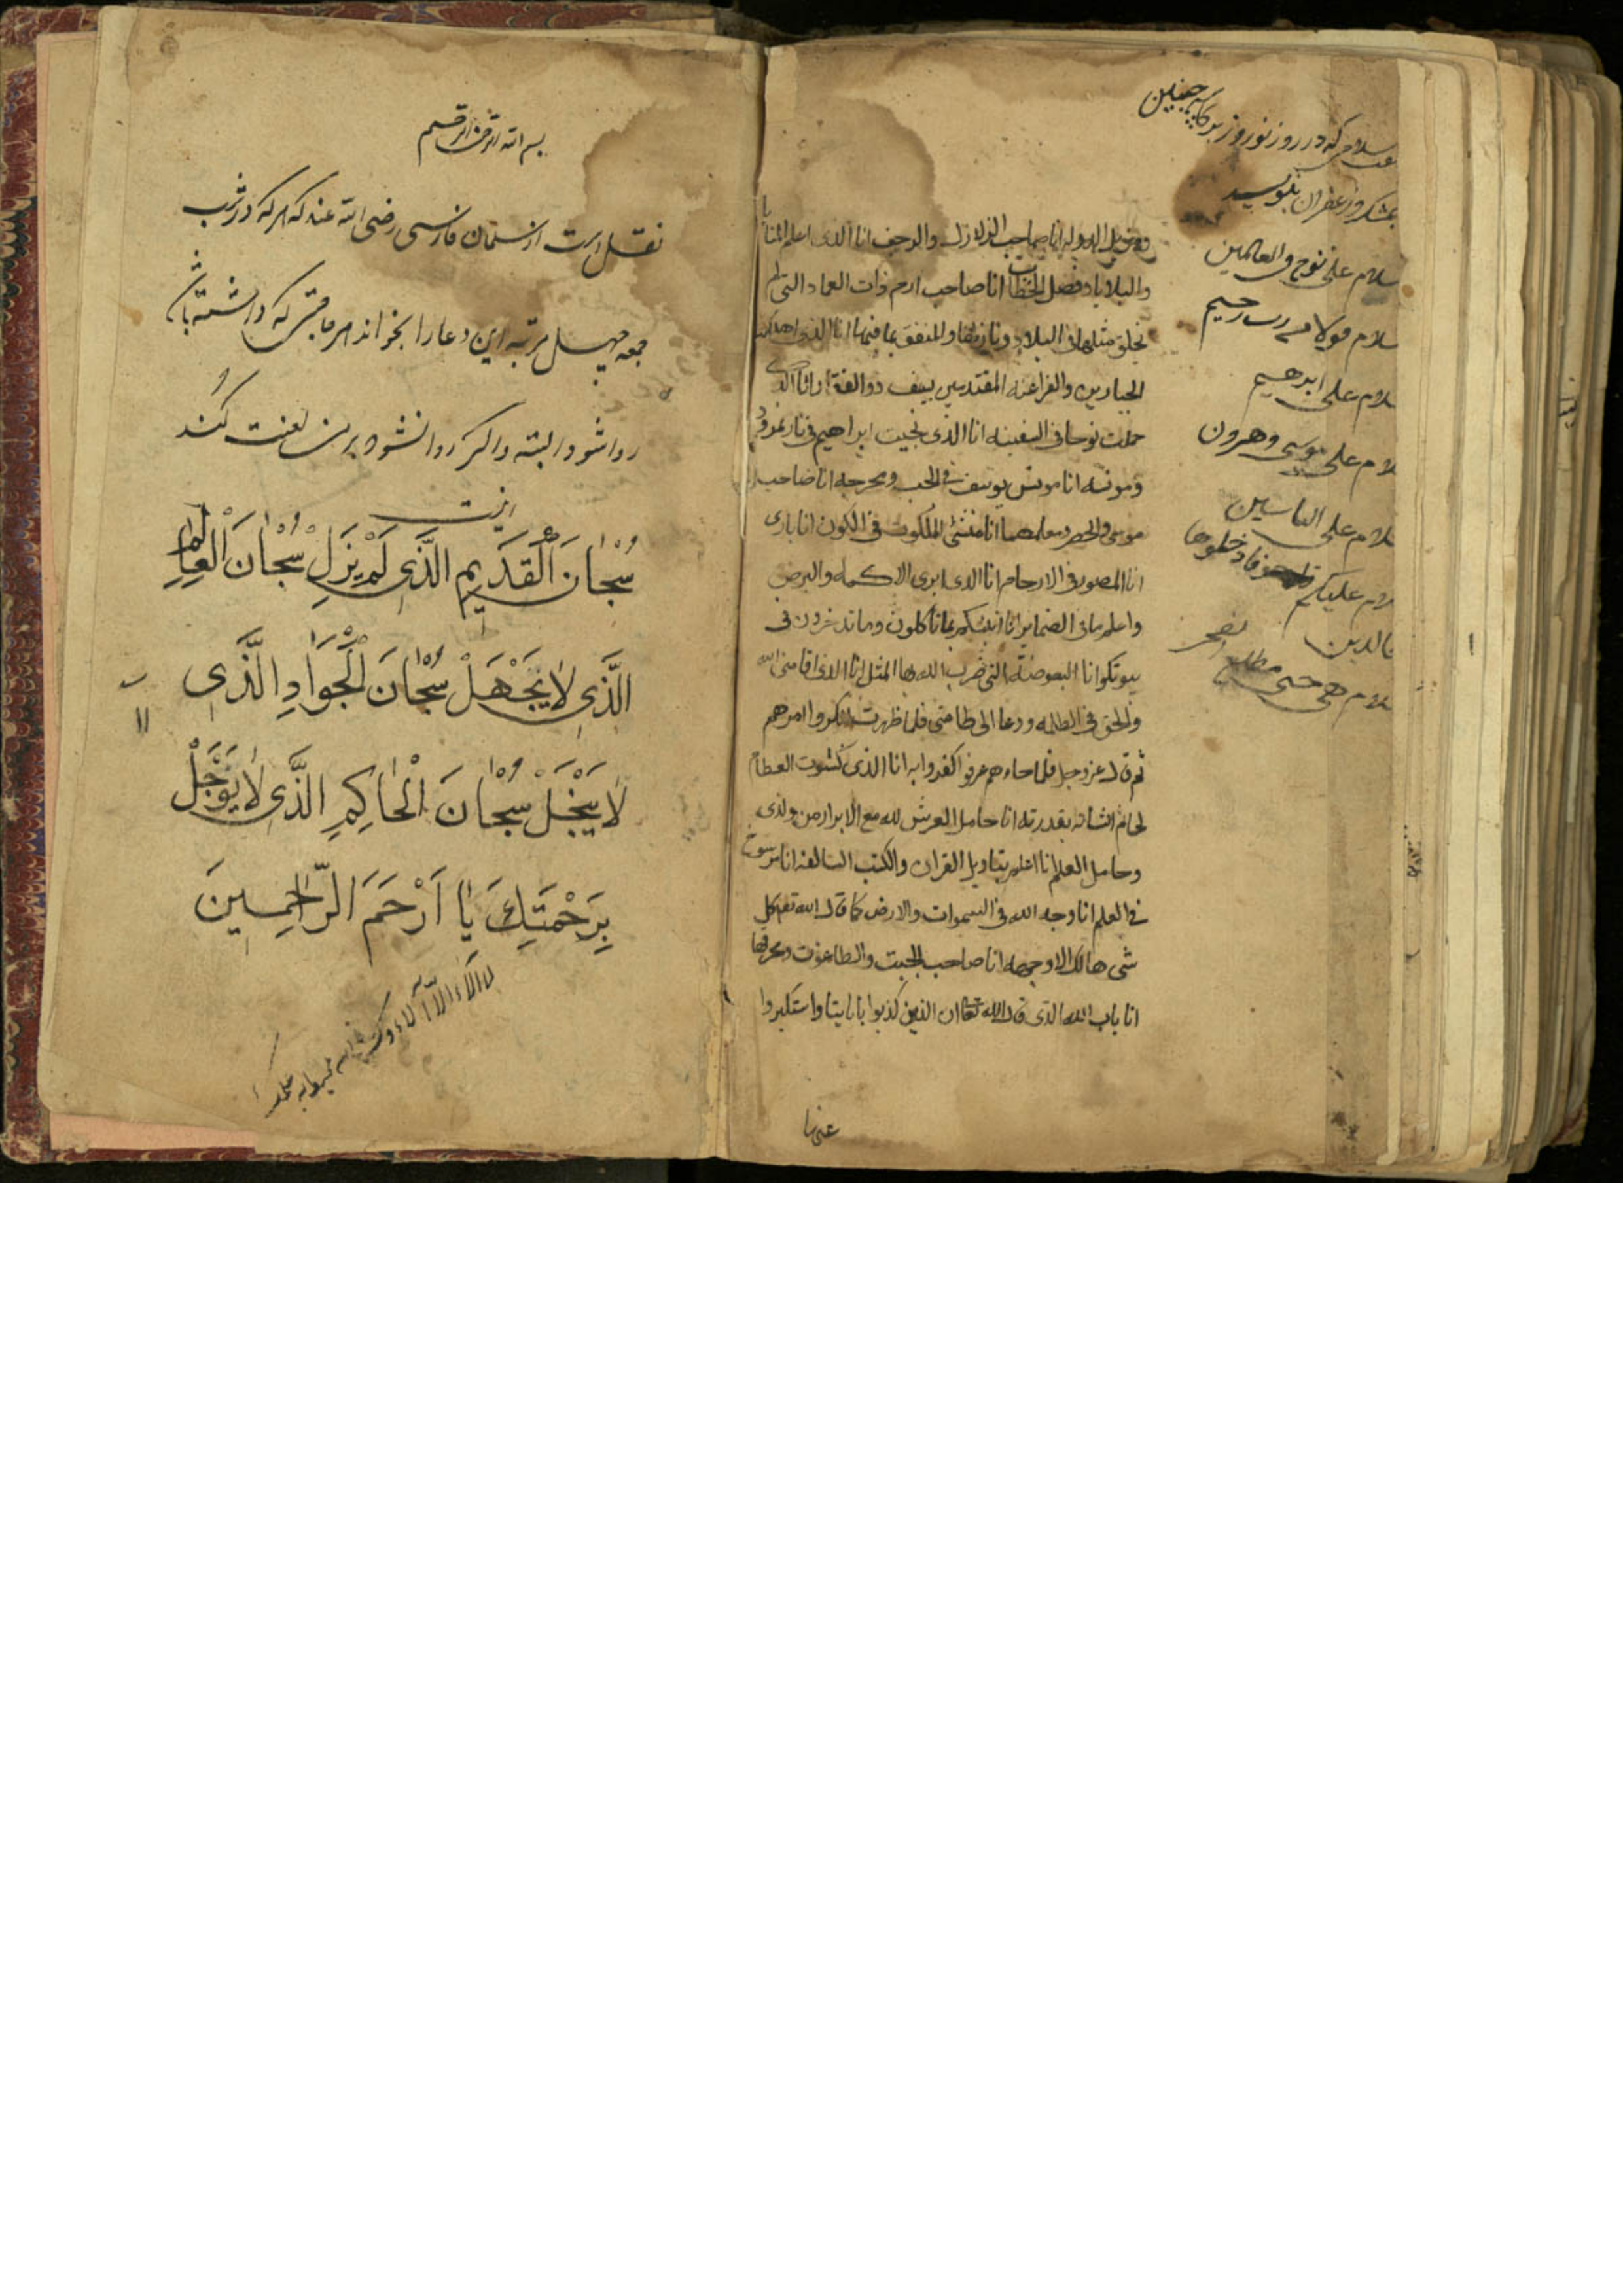 سلامی که در روز نوروز باید چنین
بمشک و زعفران بنویسد
سلام علی نوح فی العالمین
سلام قولا من رب رحیم
سلام علی ابرهیم
سلام علی موسی وهرون
سلام علی الیاسین
سلام علیکم فادخلوها
خالدین
سلام هی حتی مطلع الفجر
انا صاحب الزلازل والرجف انا الذی اعلم المنایا
والبلایا وفصل الخطاب انا صاحب ارم ذات العماد التی لم
یخلق مثلها فی البلاد ونازلها والمنفق بما فیها انا الذی اهلکت
الجبارین والفراعنه المقتدمین بسیف ذو الفقار انا الذی
حملت نوحا فی السفینه انا الذی نجیت ابراهیم فی نار نمرود
ومونسه انا مونس یوسف فی الجب ومخرجه انا صاحب
موسی والخضر ومعلمهما انا منشئ الملکوت فی الکون انا باری
انا المصور فی الارحام انا الذی ابری الاکمه والبرص
واعلم ما فی الضمایر انا انبئکم بما تاکلون وما تدخرون فی
بیوتکم انا البعوضة التی ضرب الله بها المثل انا الذی اقامنی الله
والخلق فی الظلمه ودعا الی طاعتی فلما ظهرت انکروا امرهم
ثم قال عز وجل فلما جاءهم ما عرفوا کفروا به انا الذی کسوت العظام
لحما ثم انشاته بقدرته انا حامل العرش لله مع الابرار من ولدی
وحامل العلم انا اعلم بتاویل القران والکتب السالفه انا مرسوخ
فی العلم انا وجه الله فی السموات والارض کما قال الله تعم کل
شی هالک الا وجهه انا صاحب الجبت والطاغوت ومحرقها
انا باب الله الذی قال الله تعا ان الذین کذبوا بایاتنا واستکبروا
عنها
بسم الله الرحمن الرحیم
نقل است از سلمان فارسی رضی الله عنه که هر که در شب
جمعه چهل مرتبه این دعا را بخواند هر حاجتی که داشته باشد
روا شود البته واکر روا نشود بر من لعنت کند
اینست
سُبْحٰانَ الْقَدَیمِ الَّذَی لَمْ یَزَلْ سُبْحٰانَ الْعٰالِمِ
الَّذَی لٰا یَجْهَلْ سُبْحٰانَ الْجَوَادِ الَّذَی
لٰا یَبْخَلْ سُبْحٰانَ الْحٰاکِمِ الَّذَی لٰا یُؤَجِّلْ
بِرَحْمَتِكَ یٰا اَرْحَمَ الرّٰاحِمِینَ